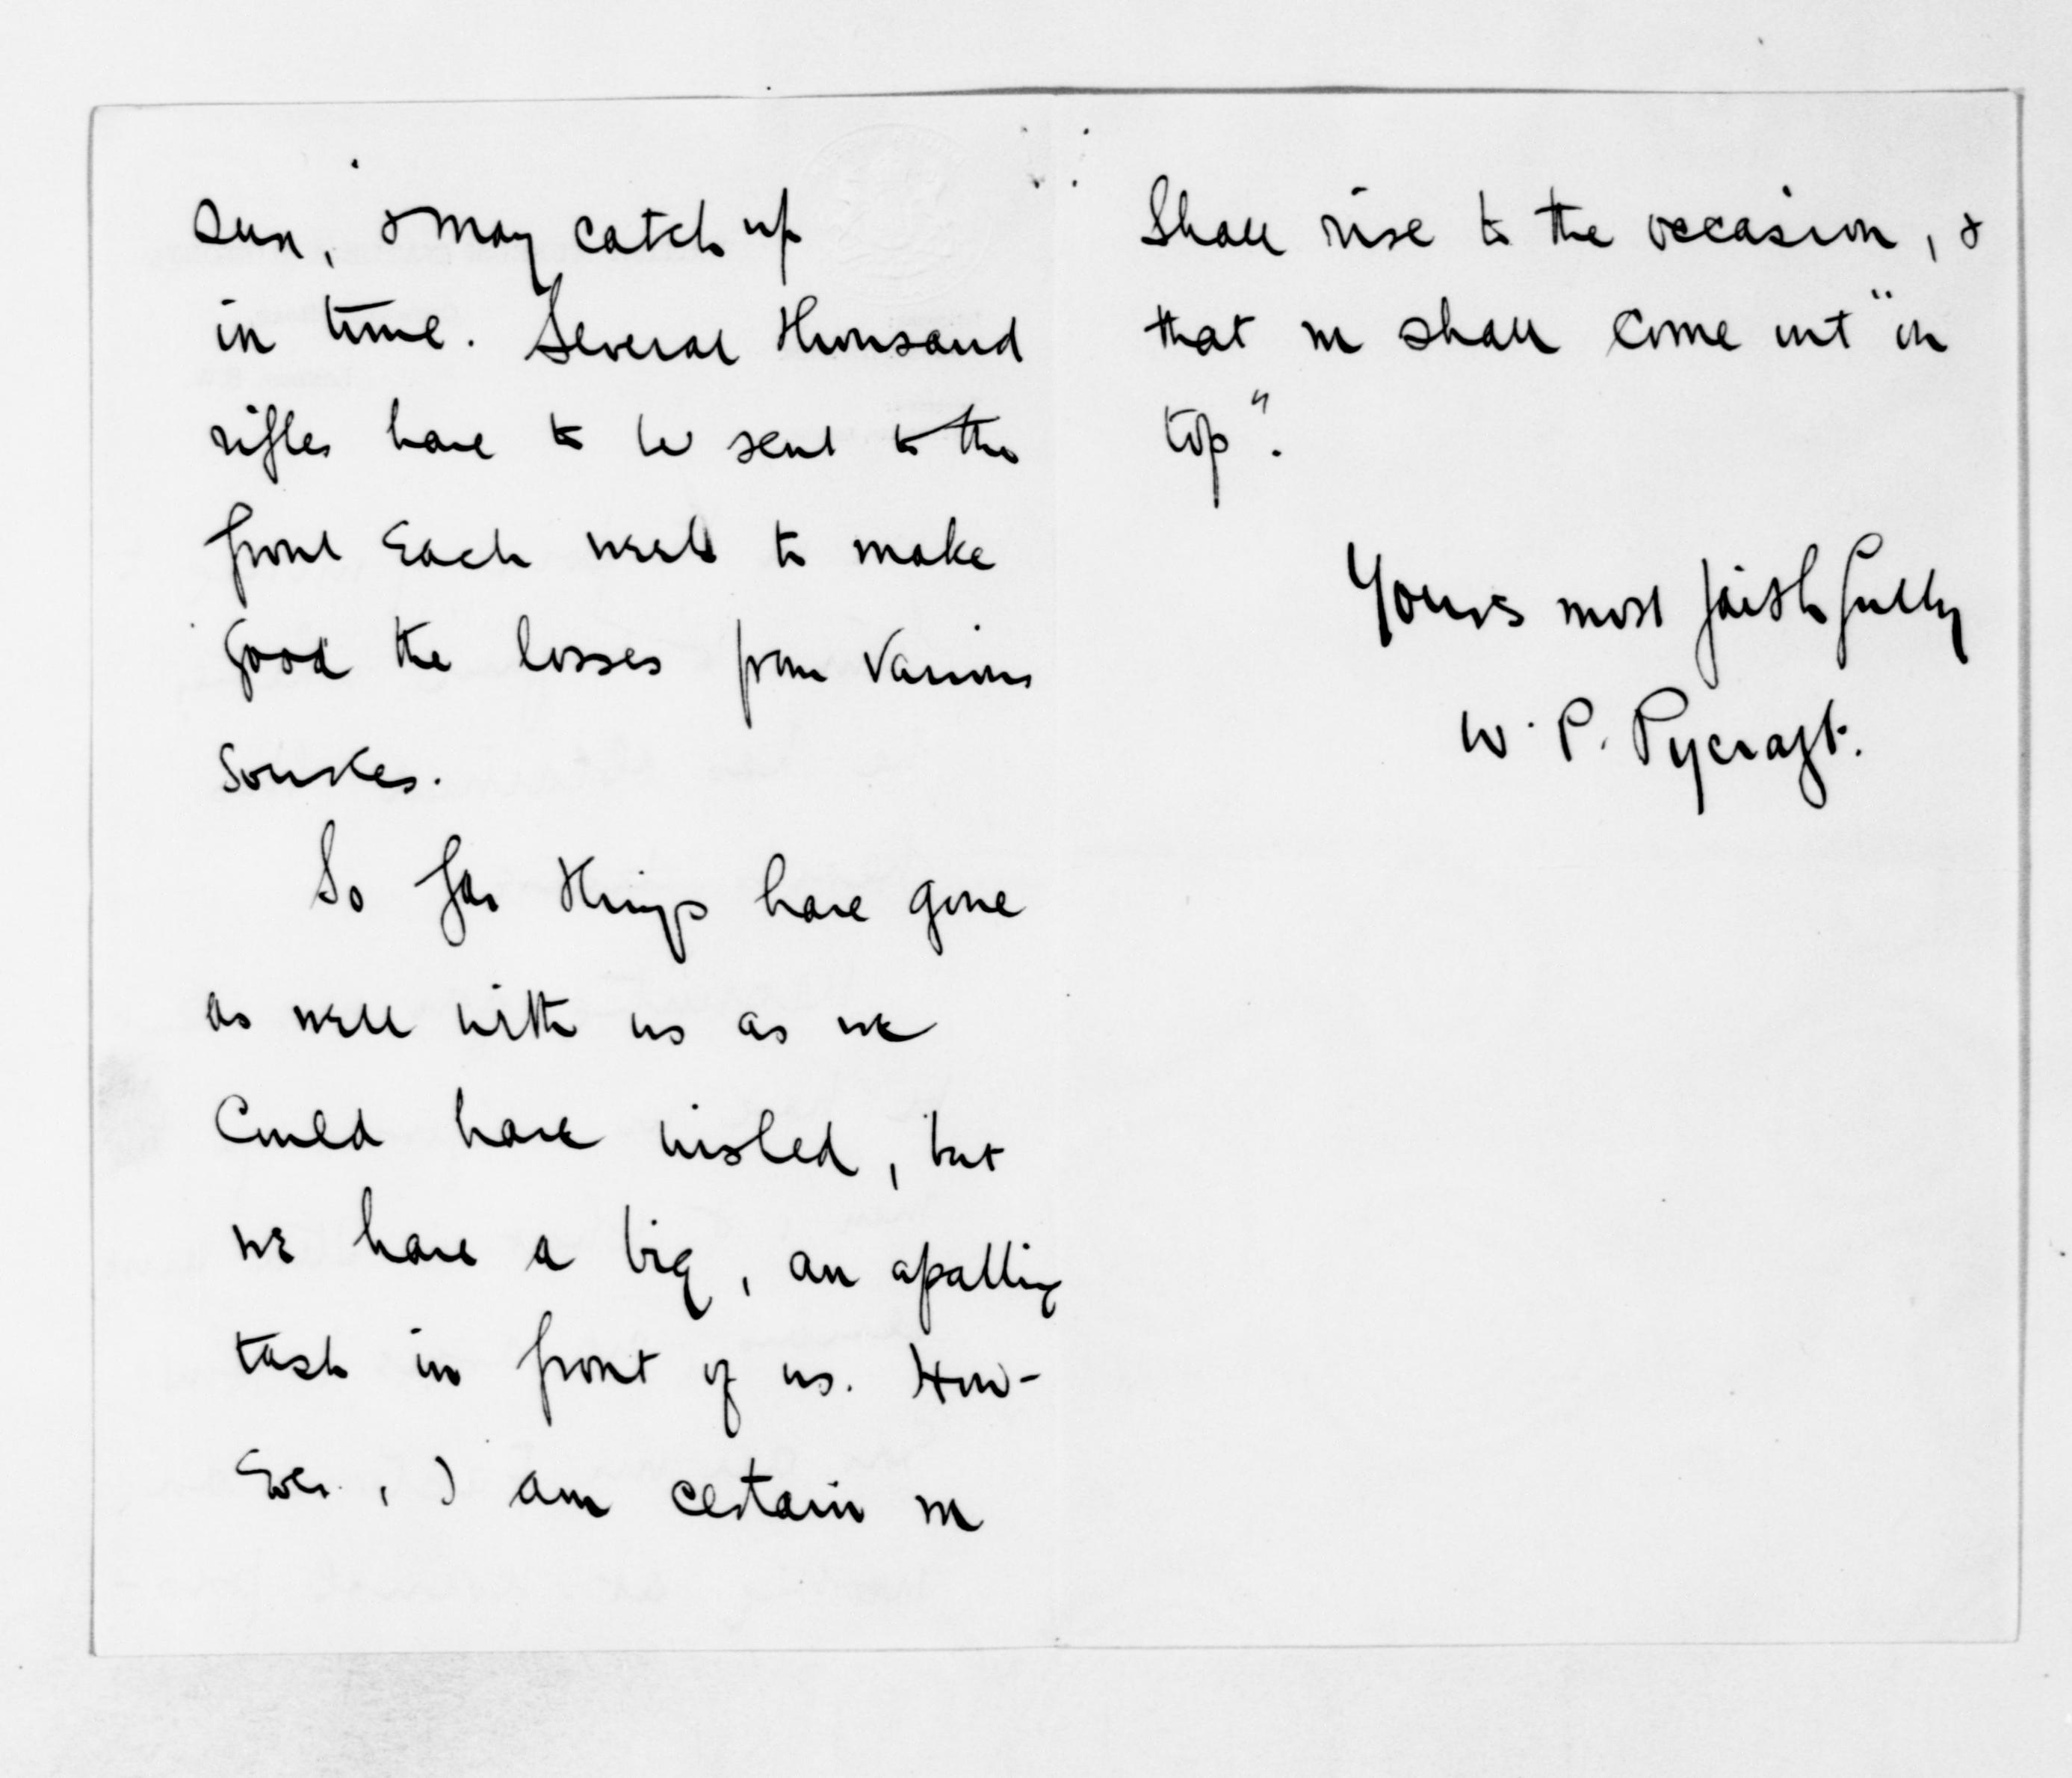 Sun, & may catch up
in time. Several thousand
rifles have to be sent to the
front each week to make
good the losses from various
sources.
So far things have gone
as well with us as we
could have wished, but
we have a big, an apalling
task in front of us. How-
ever, I am certain we
shall rise to the occasion, &
that we shall come out "on
top".
Yours most faithfully
W. P. Pycraft.